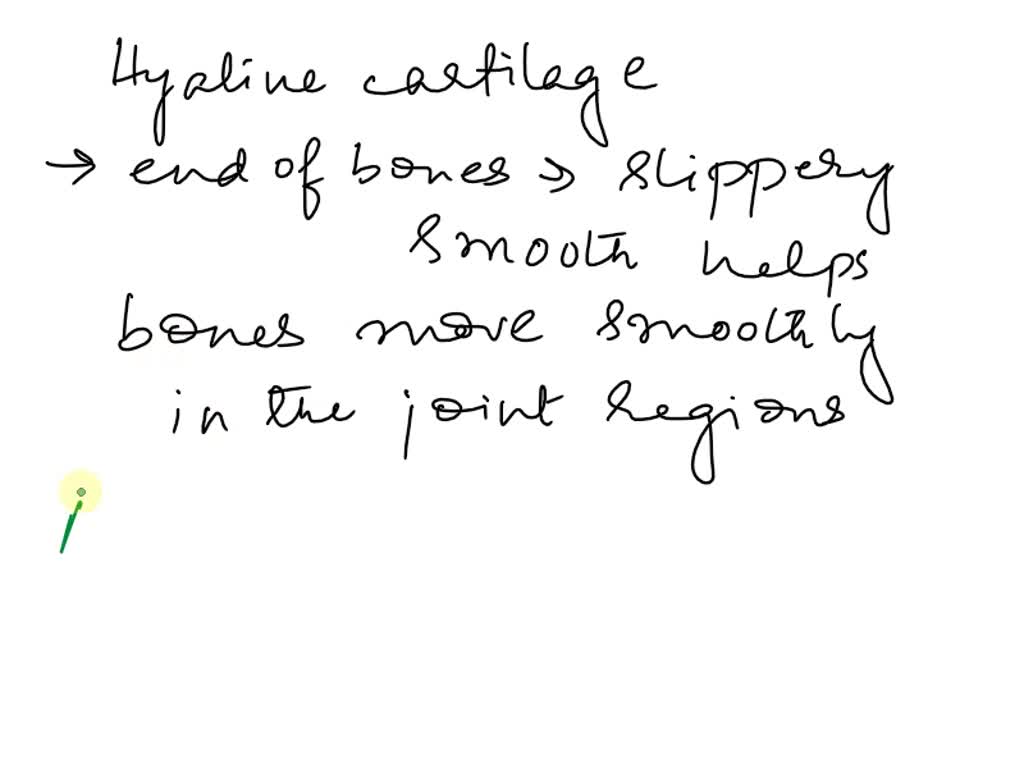 Hyaline cartilage
→ end of bones → slippery
smooth helps
bones move smoothly
in the joint regions